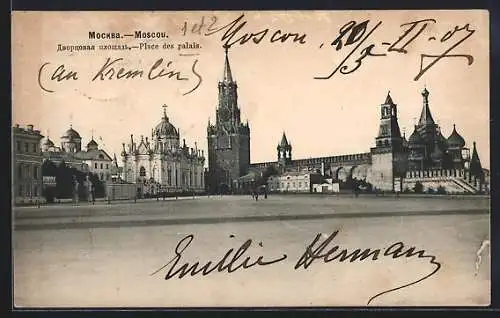 Москва.—Moscou.
Дворцовая площадь.—Place des palais.
1et2
Moscou. 20/3-II-07
(an Kremlin)
Emilie Hermann